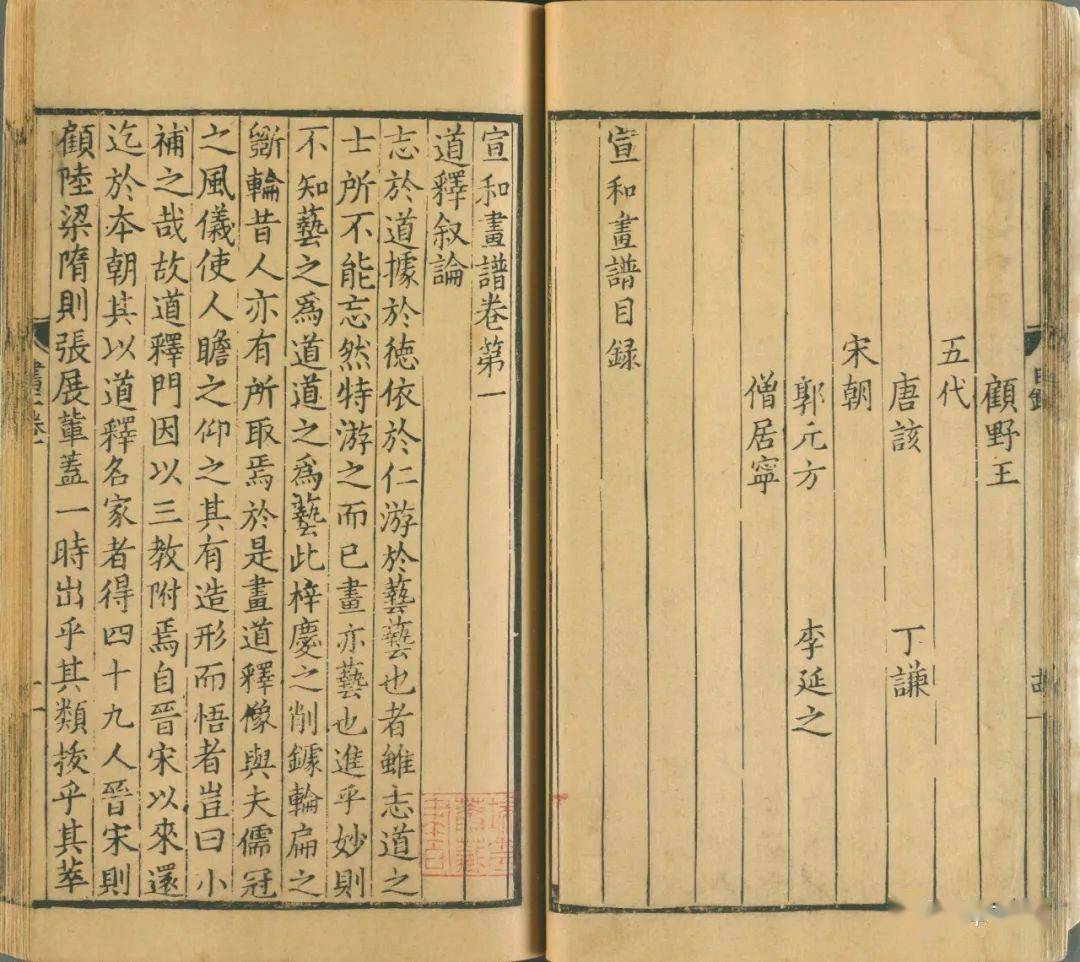 顧野王
五代
唐該 丁謙
宋朝
郭元方 李延之
僧居寧
宣和畫譜目録
宣和畫譜卷第一
道釋叙論
志於道據於徳依於仁游於藝藝也者雖志道之
士所不能忘然特游之而已畫亦藝也進乎妙則
不知藝之爲道道之爲藝此梓慶之削鐻輪扁之
斵輪昔人亦有所取焉於是畫道釋像與夫儒冠
之風儀使人瞻之仰之其有造形而悟者豈曰小
補之哉故道釋門因以三教附焉自晉宋以來還
迄於本朝其以道釋名家者得四十九人晉宋則
顧陸梁隋則張展軰蓋一時出乎其類抜乎其萃